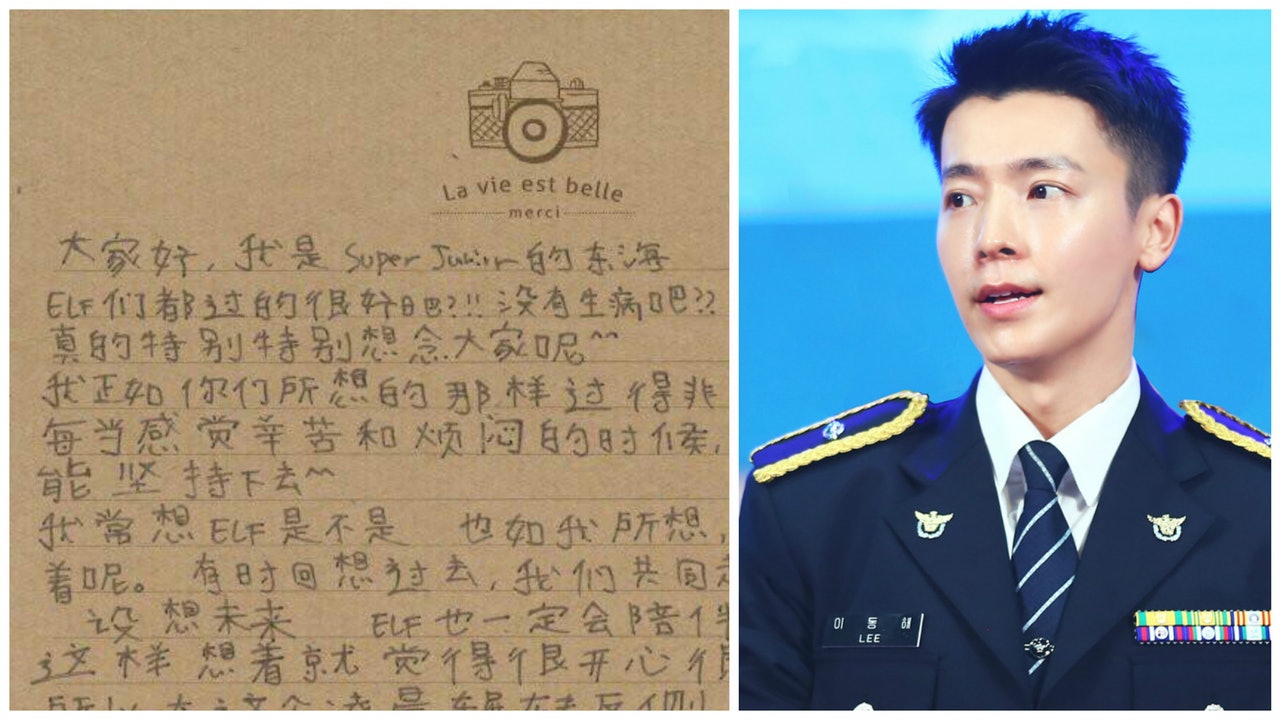 La vie est belle
merci
大家好，我是 Super Junior 的东海
ELF们都过的很好吧?!! 没有生病吧??
真的特别特别想念大家呢^^
我正如你们所想的那样过得非
每当感觉辛苦和烦闷的时候，
能坚持下去^^
我常想ELF是不是 也如我所想，
着呢。有时回想过去，我们共同走
设想未来 ELF也一定会陪伴
这样想着就觉得很开心很
所以
이동해
LEE